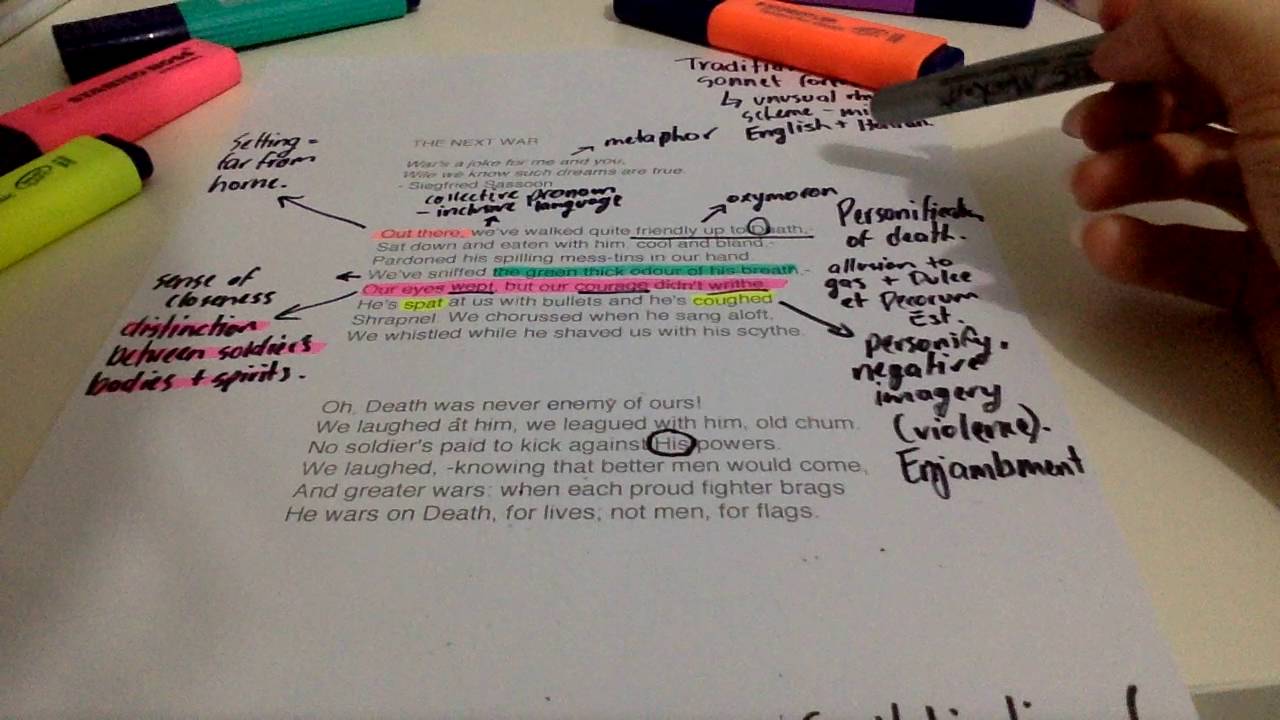 Traditi
sonnet for
↳ unusual rh
scheme - mi
English + Italian.
Setting =
far from
home.
THE NEXT WAR
→ metaphor
War's a joke for me and you,
Wile we know such dreams are true.
- Siegfried Sassoon
collective pronoun
- inclusive language
oxymoron
Out there, we've walked quite friendly up to Death,-
Sat down and eaten with him, cool and bland,-
Pardoned his spilling mess-tins in our hand.
We've sniffed the green thick odour of his breath,-
Our eyes wept, but our courage didn't writhe.
He's spat at us with bullets and he's coughed
Shrapnel. We chorussed when he sang aloft,
We whistled while he shaved us with his scythe.
sense of
closeness
distinction
between soldiers
bodies + spirits.
Personification
of death.
allusion to
gas + Dulce
et Decorum
Est.
personify.
negative
imagery
(violence).
Enjambment
Oh, Death was never enemy of ours!
We laughed at him, we leagued with him, old chum.
No soldier's paid to kick against His powers.
We laughed, -knowing that better men would come,
And greater wars: when each proud fighter brags
He wars on Death, for lives; not men, for flags.